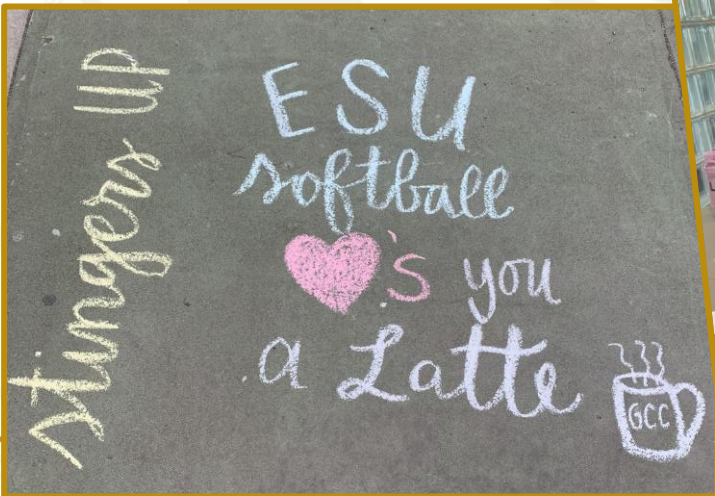 stingers UP
ESU
softball
♥'s you
a Latte
GCC